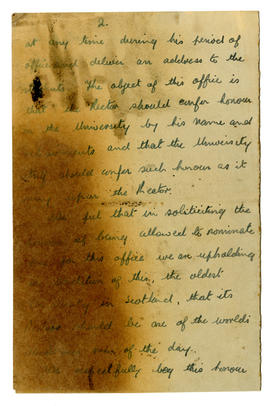 2.
at any time during his period of
office and deliver an address to the
The object of this office is
Rector should confer honour
the University by his name and
and that the University
should confer such honour as it
upon the Rector.
feel that in soliciting the
of being allowed to nominate
for this office we are upholding
of this, the oldest
in Scotland, that its
should be one of the world's
men of the day.
respectfully beg this honour